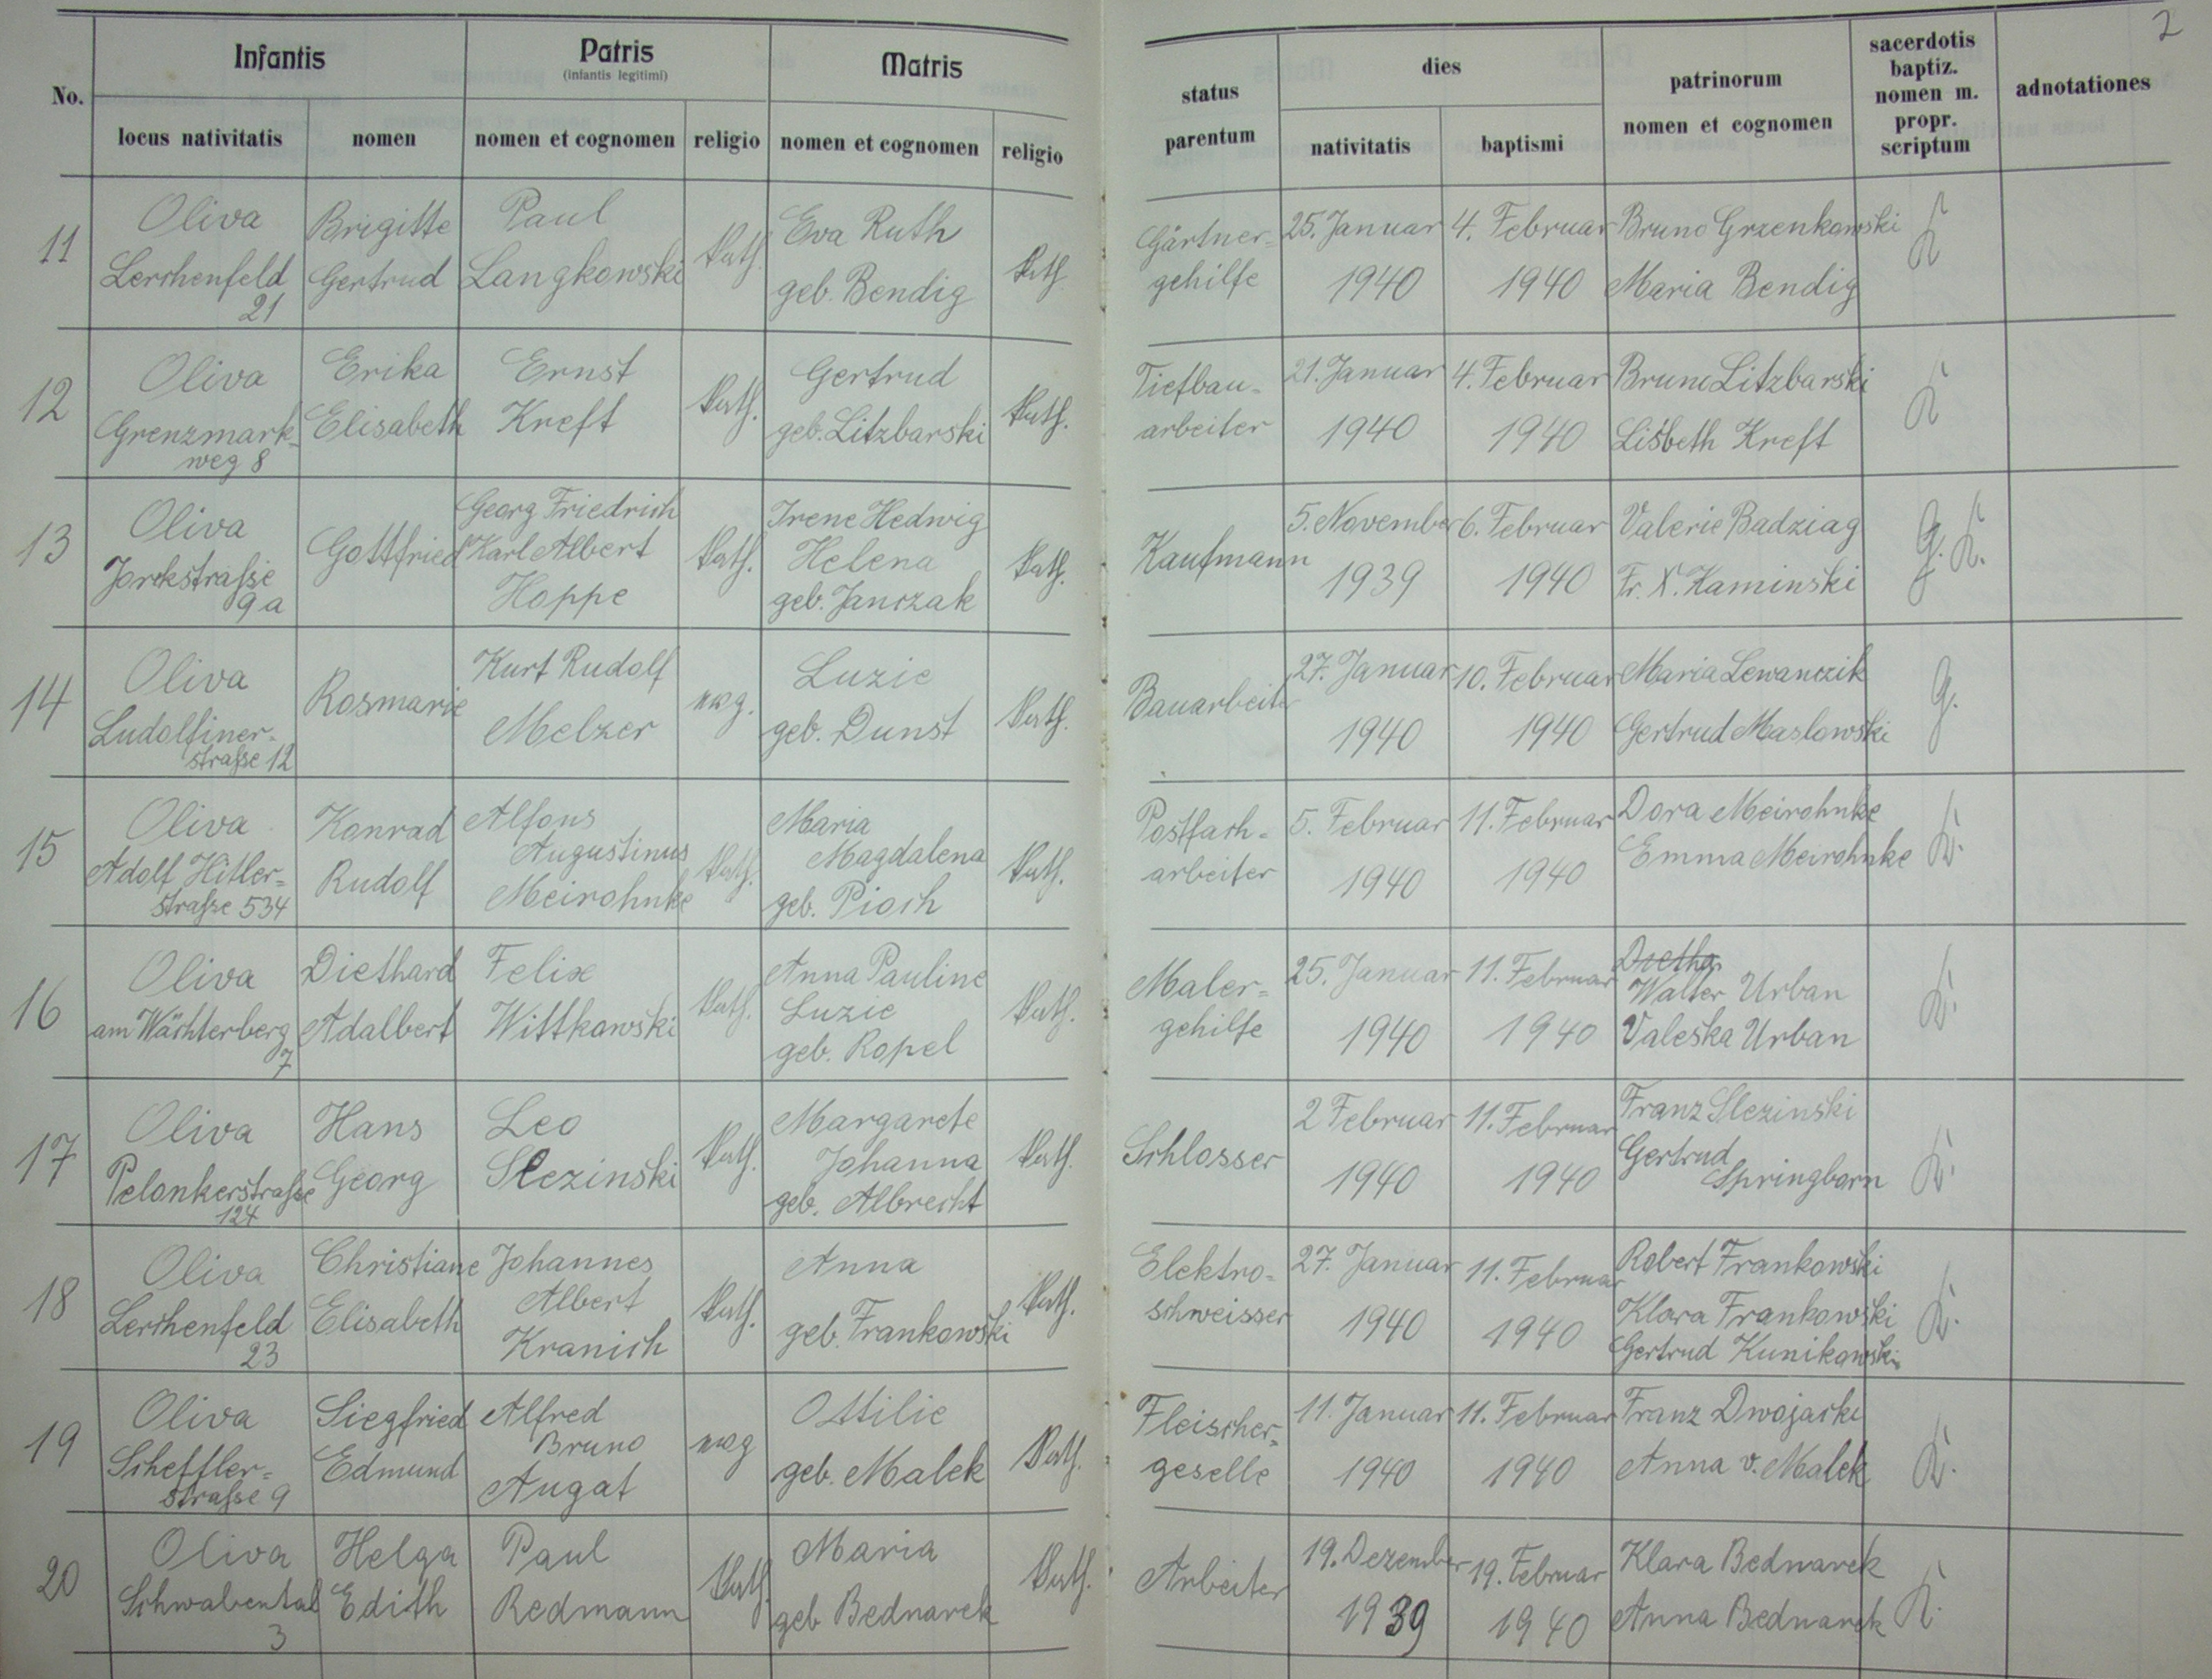 2
No.
Infantis
Patris
(infantis legitimi)
Matris
locus nativitatis
nomen
nomen et cognomen
religio
nomen et cognomen
religio
status
parentum
dies
nativitatis
baptismi
patrinorum
nomen et cognomen
sacerdotis
baptiz.
nomen m.
propr.
scriptum
adnotationes
11
Oliva
Lerchenfeld
21
Brigitte
Gertrud
Paul
Langkowski
Kath.
Eva Ruth
geb. Bendig
Kath
Gärtner=
gehilfe
25. Januar
1940
4. Februar
1940
Bruno Grzenkowski
Maria Bendig
K
12
Oliva
Grenzmark-
weg 8
Erika
Elisabeth
Ernst
Kreft
Kath.
Gertrud
geb. Litzbarski
Kath.
Tiefbau-
arbeiter
21. Januar
1940
4. Februar
1940
Bruno Litzbarski
Lisbeth Kreft
K
13
Oliva
Jorckstraße
9a
Gottfried
Georg Friedrich
Karl Albert
Hoppe
Kath.
Irene Hedwig
Helena
geb. Janczak
Kath.
Kaufmann
5. November
1939
6. Februar
1940
Valerie Badziag
Fr. X. Kaminski
G. K.
14
Oliva
Ludolfiner-
strasse 12
Rosmarie
Kurt Rudolf
Melzer
Luzie
geb. Dunst
Kath.
Bauarbeiter
27. Januar
1940
10. Februar
1940
Maria Lewanczik
Gertrud Maslowski
G.
15
Oliva
Adolf Hitler=
straße 534
Konrad
Rudolf
Alfons
Augustinus
Meirohnke
Kath.
Maria
Magdalena
geb. Pioch
Kath.
Postfach=
arbeiter
5. Februar
1940
11. Februar
1940
Dora Meirohnke
Emma Meirohnke
K.
16
Oliva
am Wächterberg
7
Diethard
Adalbert
Felix
Wittkowski
Kath.
Anna Pauline
Luzie
geb. Ropel
Kath.
Maler=
gehilfe
25. Januar
1940
11. Februar
1940
Dietha
Walter Urban
Valeska Urban
K.
17
Oliva
Pelonkerstraße
124
Hans
Georg
Leo
Slezinski
Kath.
Margarete
Johanna
geb. Albrecht
Kath.
Schlosser
2 Februar
1940
11. Februar
1940
Franz Slezinski
Gertrud
Springborn
K.
18
Oliva
Lerchenfeld
23
Christiane
Elisabeth
Johannes
Albert
Kranich
Kath.
Anna
geb. Frankowski
Kath.
Elektro=
schweisser
27. Januar
1940
11. Februar
1940
Robert Frankowski
Klara Frankowski
Gertrud Kunikowski
K.
19
Oliva
Scheffler=
strasse 9
Siegfried
Edmund
Alfred
Bruno
Augat
Ottilie
geb. Malek
Kath.
Fleischer=
geselle
11. Januar
1940
11. Februar
1940
Franz Dwojacki
Anna v. Malek
K.
20
Oliva
Schwabental
3
Helga
Edith
Paul
Redmann
Kath.
Maria
geb Bednarek
Kath.
Arbeiter
19. Dezember
1939
19. Februar
1940
Klara Bednarek
Anna Bednarek
K.